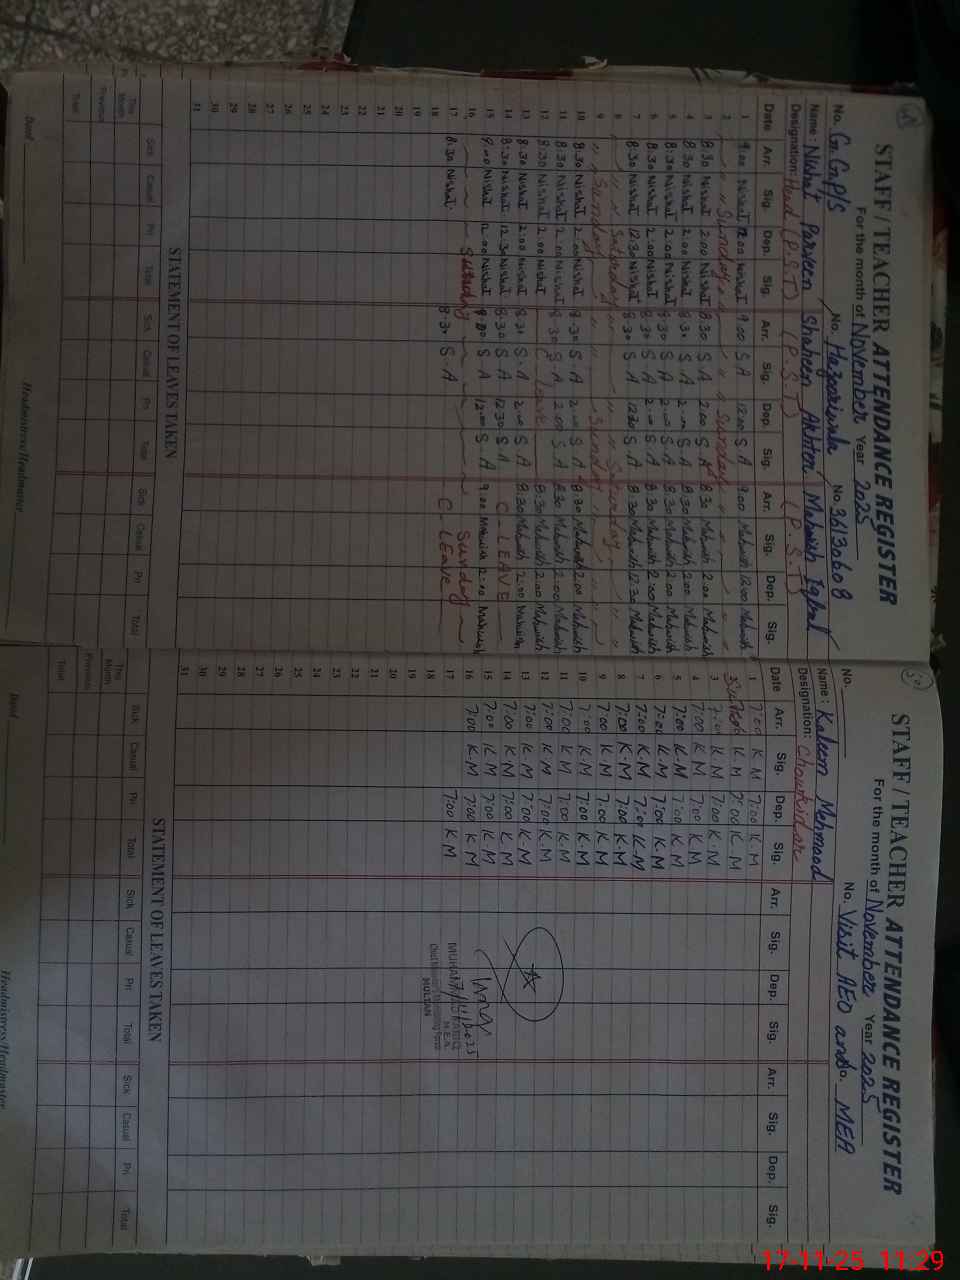 STAFF / TEACHER ATTENDANCE REGISTER
For the month of November Year 2025
No. G.G.P/S No. No. 36130608
Name: Nishat Parveen Shaheen Akhter Mahwish Iqbal
Designation: Head (P.S.T) (P.S.T) (P.S.T)
Date Arr. Sig. Dep. Sig. Arr. Sig. Dep. Sig. Arr. Sig. Dep. Sig.
1 9.00 Nishat 12.00 Nishat 9.00 S.A 12.00 S.A 9.00 Mahwish 12:00 Mahwish
2 " " Sunday " " Sunday
3 8.30 Nishat 2.00 Nishat 8.30 S.A 2.00 S.A 8.30 Mahwish 2:00 Mahwish
4 8.30 Nishat 2.00 Nishat 8.30 S.A 2.00 S.A 8.30 Mahwish 2:00 Mahwish
5 8.30 Nishat 2.00 Nishat 8.30 S.A 2.00 S.A 8.30 Mahwish 2:00 Mahwish
6 8.30 Nishat 2.00 Nishat 8.30 S.A 2.00 S.A 8.30 Mahwish 2:00 Mahwish
7 8.30 Nishat 12.30 Nishat 8.30 S.A 12.30 S.A 8.30 Mahwish 12:30 Mahwish
8 " " Saturday " " Saturday " "
9 " Sunday " " Sunday " "
10 8.30 Nishat 2.00 Nishat 8.30 S.A 2.00 S.A 8.30 Mahwish 2:00 Mahwish
11 8.30 Nishat 2.00 Nishat 8.30 S.A 2.00 S.A 8.30 Mahwish 2:00 Mahwish
12 8:30 Nishat 2.00 Nishat C Leave 8:30 Mahwish 2:00 Mahwish
13 8.30 Nishat 2:00 Nishat 8:30 S.A 2.00 S.A 8:30 Mahwish 2:00 Mahwish
14 8:30 Nishat 12.30 Nishat 8:30 S.A 12.30 S.A C-LEAVE
15 9.00 Nishat 12.00 Nishat S.A 12.00 S.A 9.00 Mahwish Mahwish
16 Sunday Sunday
17 8:30 Nishat. 8:30 S.A C-Leave
18
19
20
21
22
23
24
25
26
27
28
29
30
31
STATEMENT OF LEAVES TAKEN
Sick Casual Pri Total Sick Casual Pri Total Sick Casual Pri Total
This Month
Previous
Total
Dated
Headmistress/Headmaster
STAFF / TEACHER ATTENDANCE REGISTER
For the month of November Year 2025
No. No. Visit AEO and No. MEA
Name: Kaleem Mehmood
Designation: Chowkidar
Date Arr. Sig. Dep. Sig. Arr. Sig. Dep. Sig. Arr. Sig. Dep. Sig.
1 7:00 K.M 7:00 K.M
2 K.M 7:00 K.M
3 7:00 K.M 7:00 K.M
4 7:00 K.M 7:00 K.M
5 7:00 K.M 7:00 K.M
6 7:00 K.M 7:00 K.M
7 7:00 K.M 7:00 K.M
8 7:00 K.M 7:00 K.M
9 7:00 K.M 7:00 K.M
10 7:00 K.M 7:00 K.M
11 7:00 K.M 7:00 K.M
12 7:00 K.M 7:00 K.M
13 7:00 K.M 7:00 K.M
14 7:00 K.M 7:00 K.M
15 7:00 K.M 7:00 K.M
16 7:00 K.M 7:00 K.M
17 7:00 K M
18
19
20
21
22
23
24
25
26
27
28
29
30
31
17/11/2025
M.E.A.
MULTAN
STATEMENT OF LEAVES TAKEN
Sick Casual Pri Total Sick Casual Pri Total Sick Casual Pri Total
This Month
Previous
Total
Dated
Headmistress/Headmaster
17-11-25 11:29